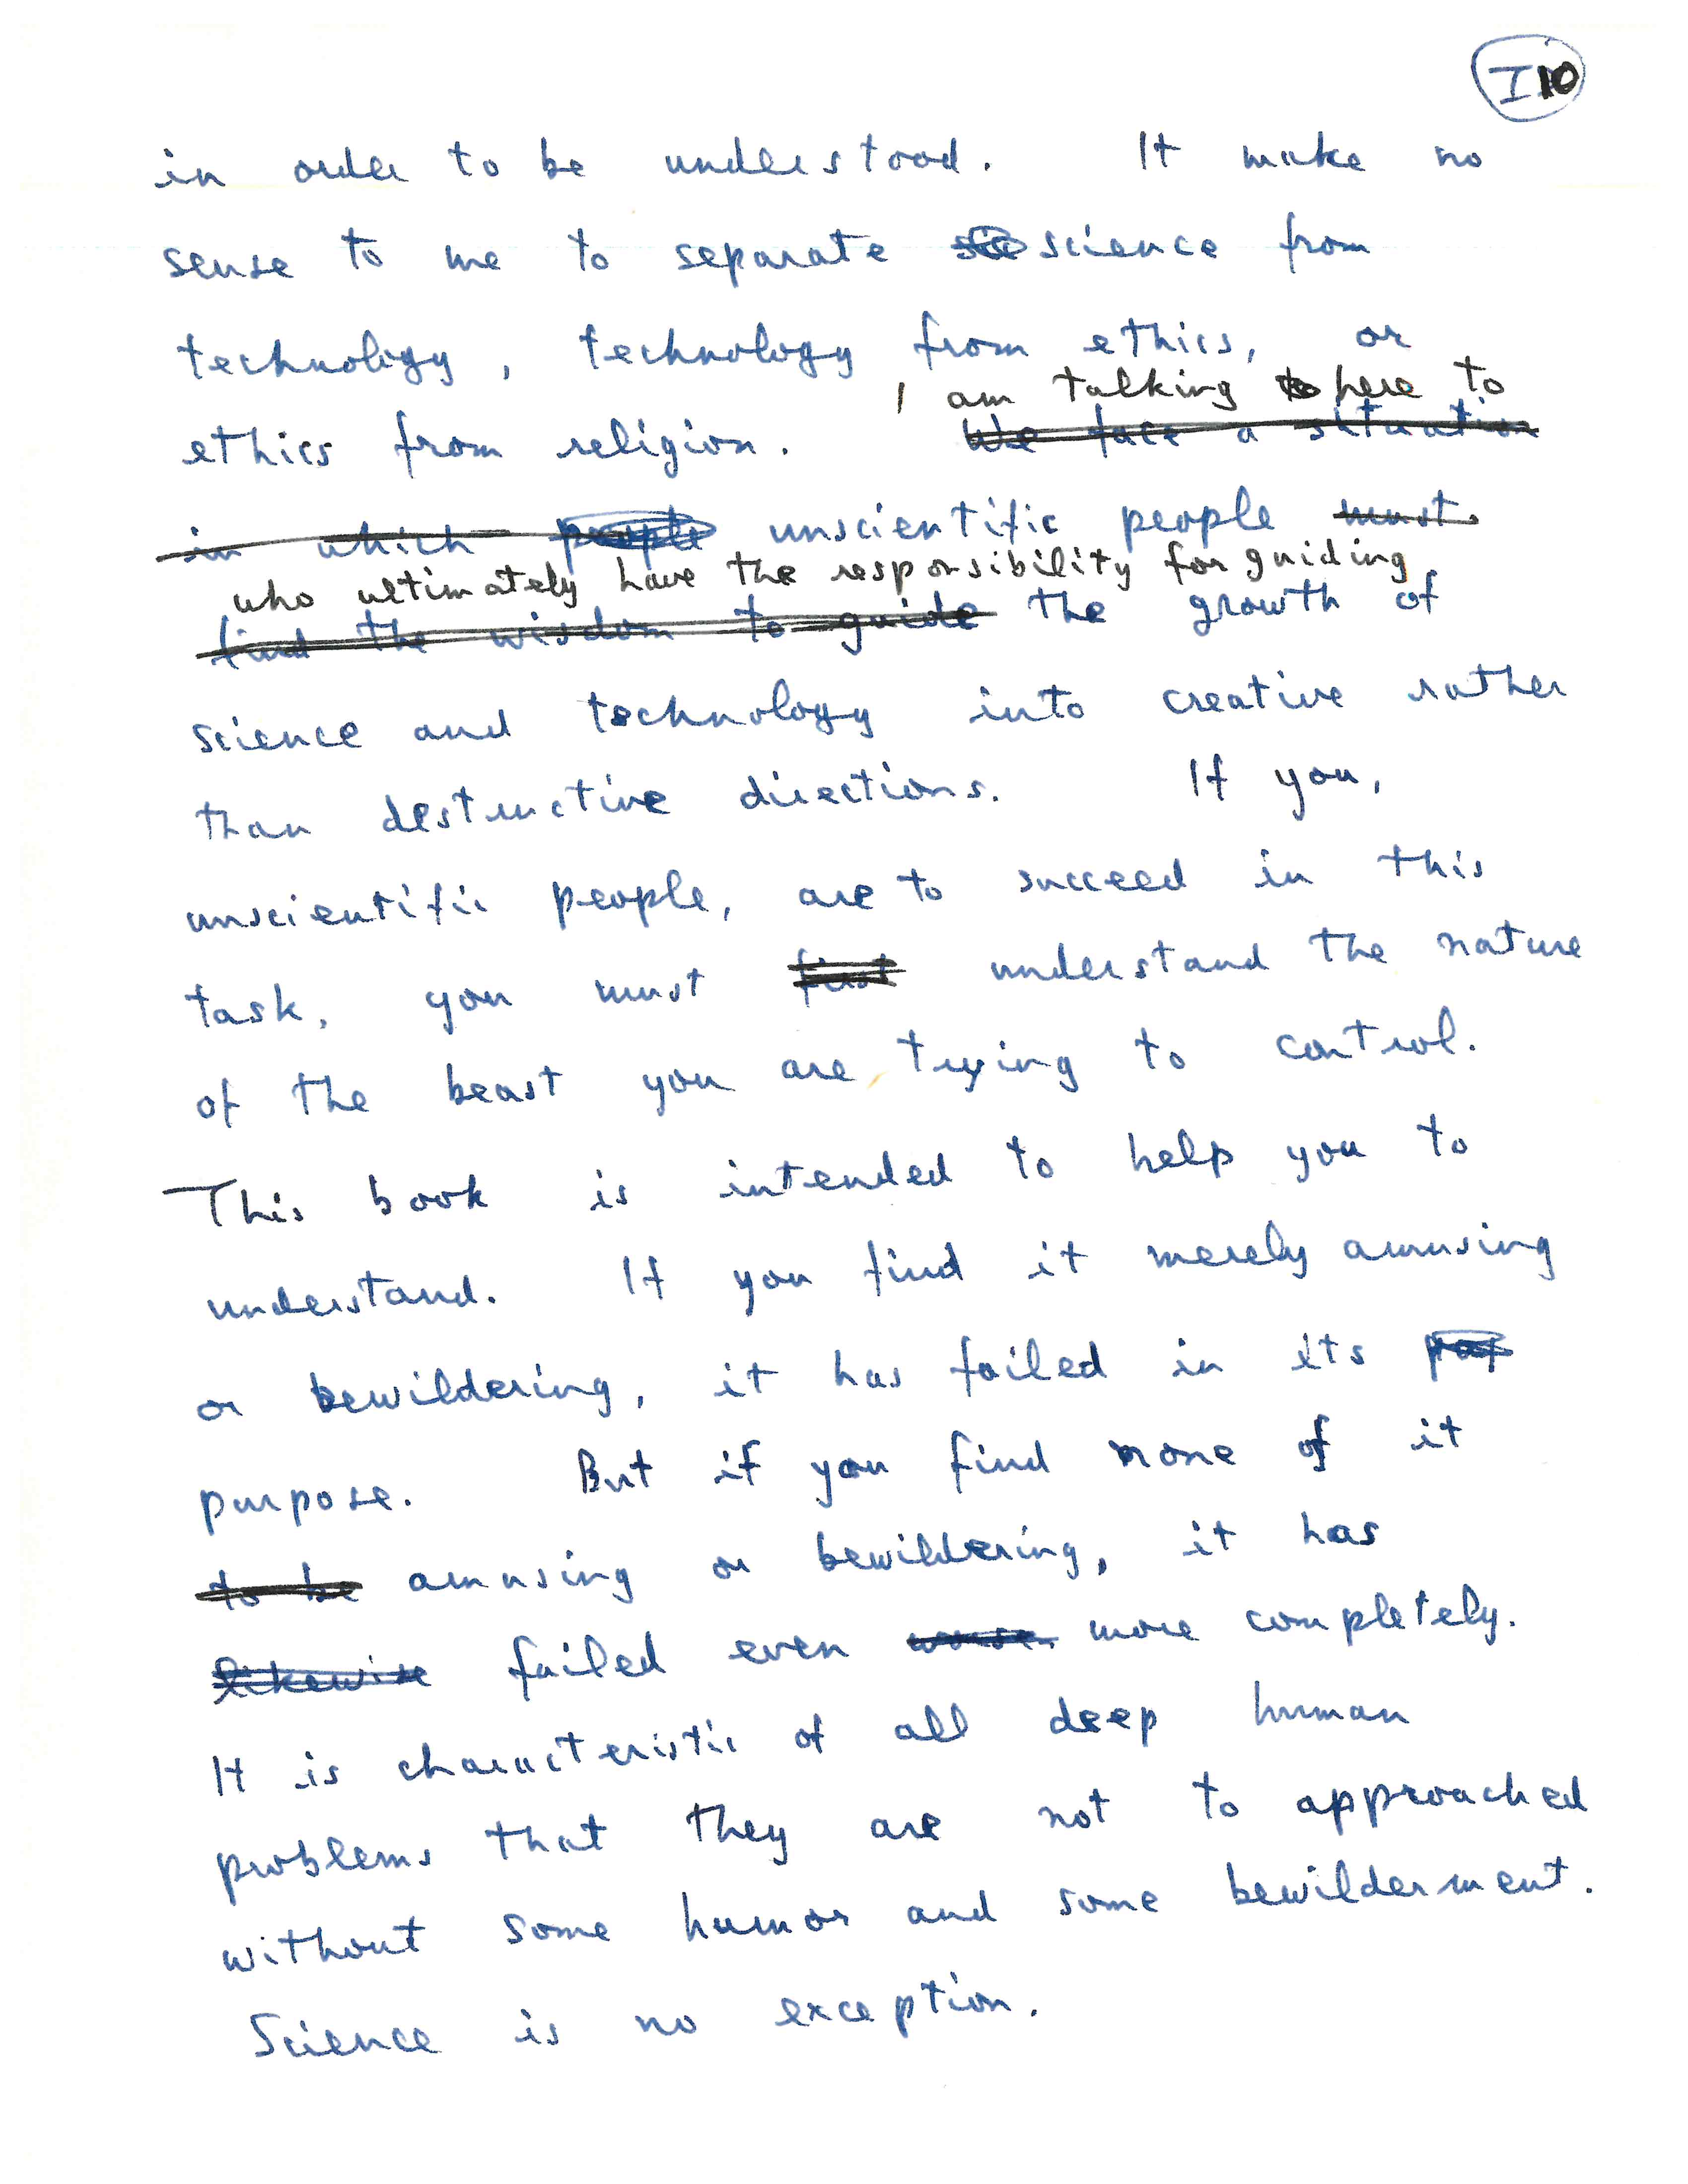 I 10
in order to be understood. It make no
sense to me to separate science from
technology, technology from ethics, or
I am talking here to
ethics from religion. We face a situation
in which people unscientific people must
who ultimately have the responsibility for guiding
find the wisdom to guide the growth of
science and technology into creative rather
than destructive directions. If you,
unscientific people, are to succeed in this
task, you must first understand the nature
of the beast you are trying to control.
This book is intended to help you to
understand. If you find it merely amusing
or bewildering, it has failed in its
purpose. But if you find none of it
to be amusing or bewildering, it has
likewise failed even worse more completely.
It is characteristic of all deep human
problems that they are not to approached
without some humor and some bewilderment.
Science is no exception.